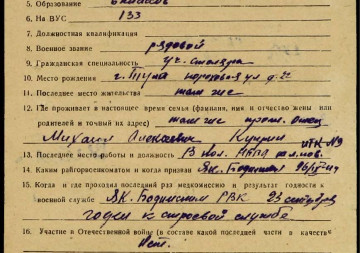 5. Образование 6 классов
6. На ВУС 133
7. Должностная квалификация
8. Военное звание рядовой
9. Гражданская специальность уч. столяра
10. Место рождения г. Тула
11. Последнее место жительства там же
12. Где проживает в настоящее время семья (фамилия, имя и отчество жены или
родителей и точный их адрес) там же отец
Михаил Алексеевич
13. Последнее место работы и должность
14. Каким райгорвоенкоматом и когда призван
15. Когда и где проходил последний раз медкомиссию и результат годности к
военной службе РВК 23 сентября
годен к строевой службе
16. Участие в Отечественной войне (в составе какой последней части и в качестве
Нет.